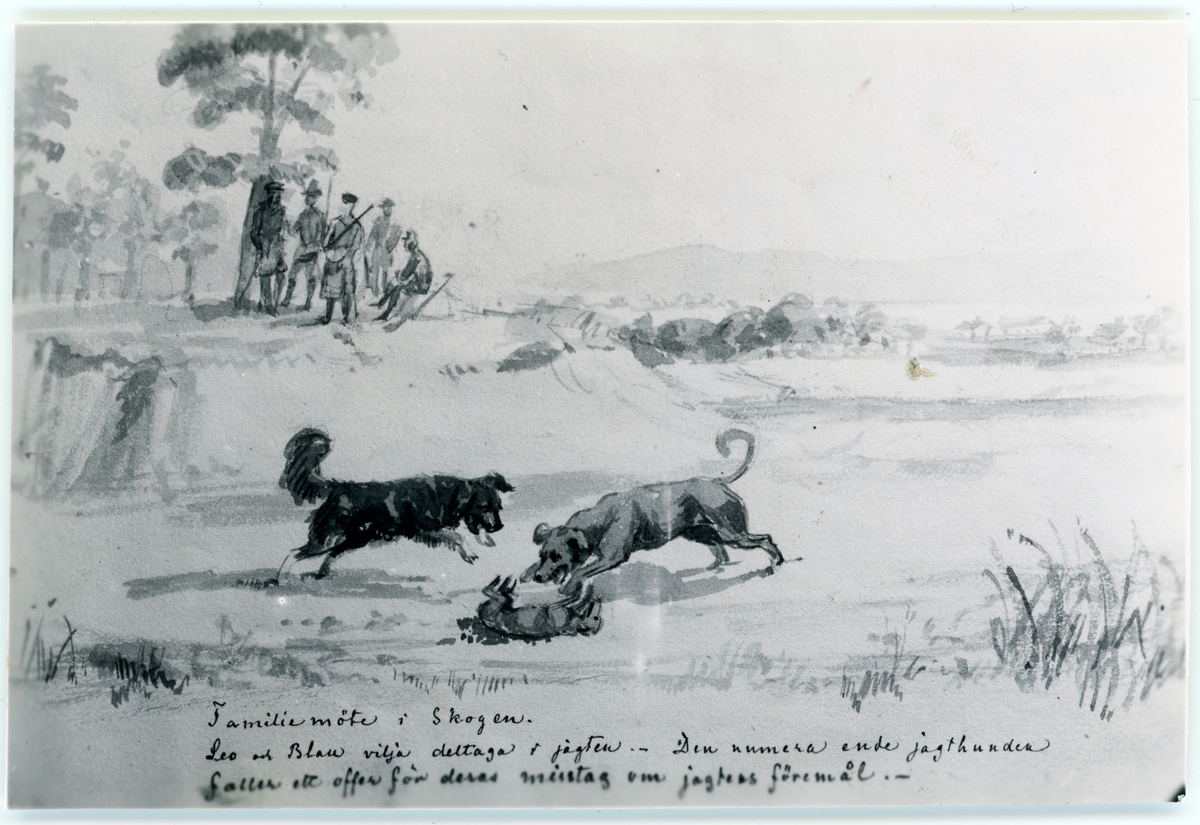 Familiemöte i Skogen.
Leo och Blau vilja deltaga i jagten. – Den numera ende jagthunden
faller ett offer för deras misstag om jagtens föremål. –